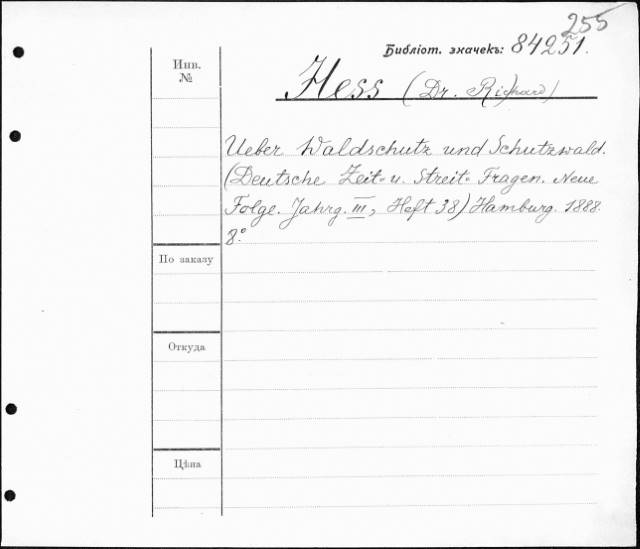 255
Библіот. значекъ: 84251.
Инв.
№
Hess (Dr. Richard)
Ueber Waldschutz und Schutzwald.
(Deutsche Zeit- u. Streit- Fragen. Neue
Folge. Jahrg. III, Heft 38) Hamburg. 1888.
8°.
По заказу
Откуда
Цѣна